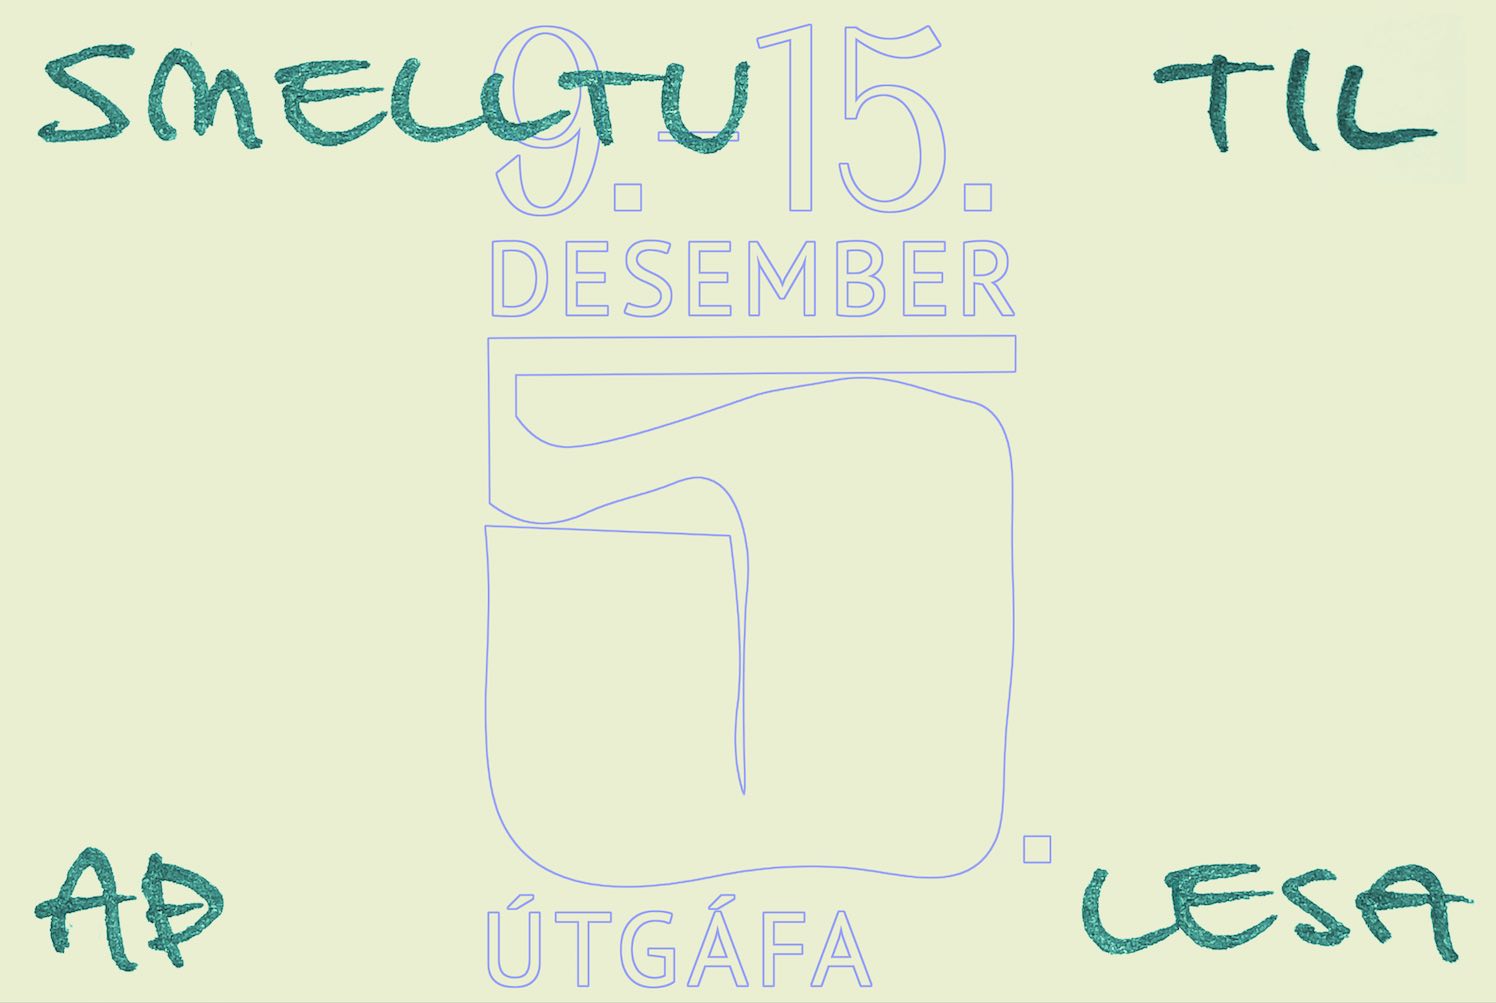 SMELLTU TIL
9.–15.
DESEMBER
5.
ÚTGÁFA
AÐ LESA